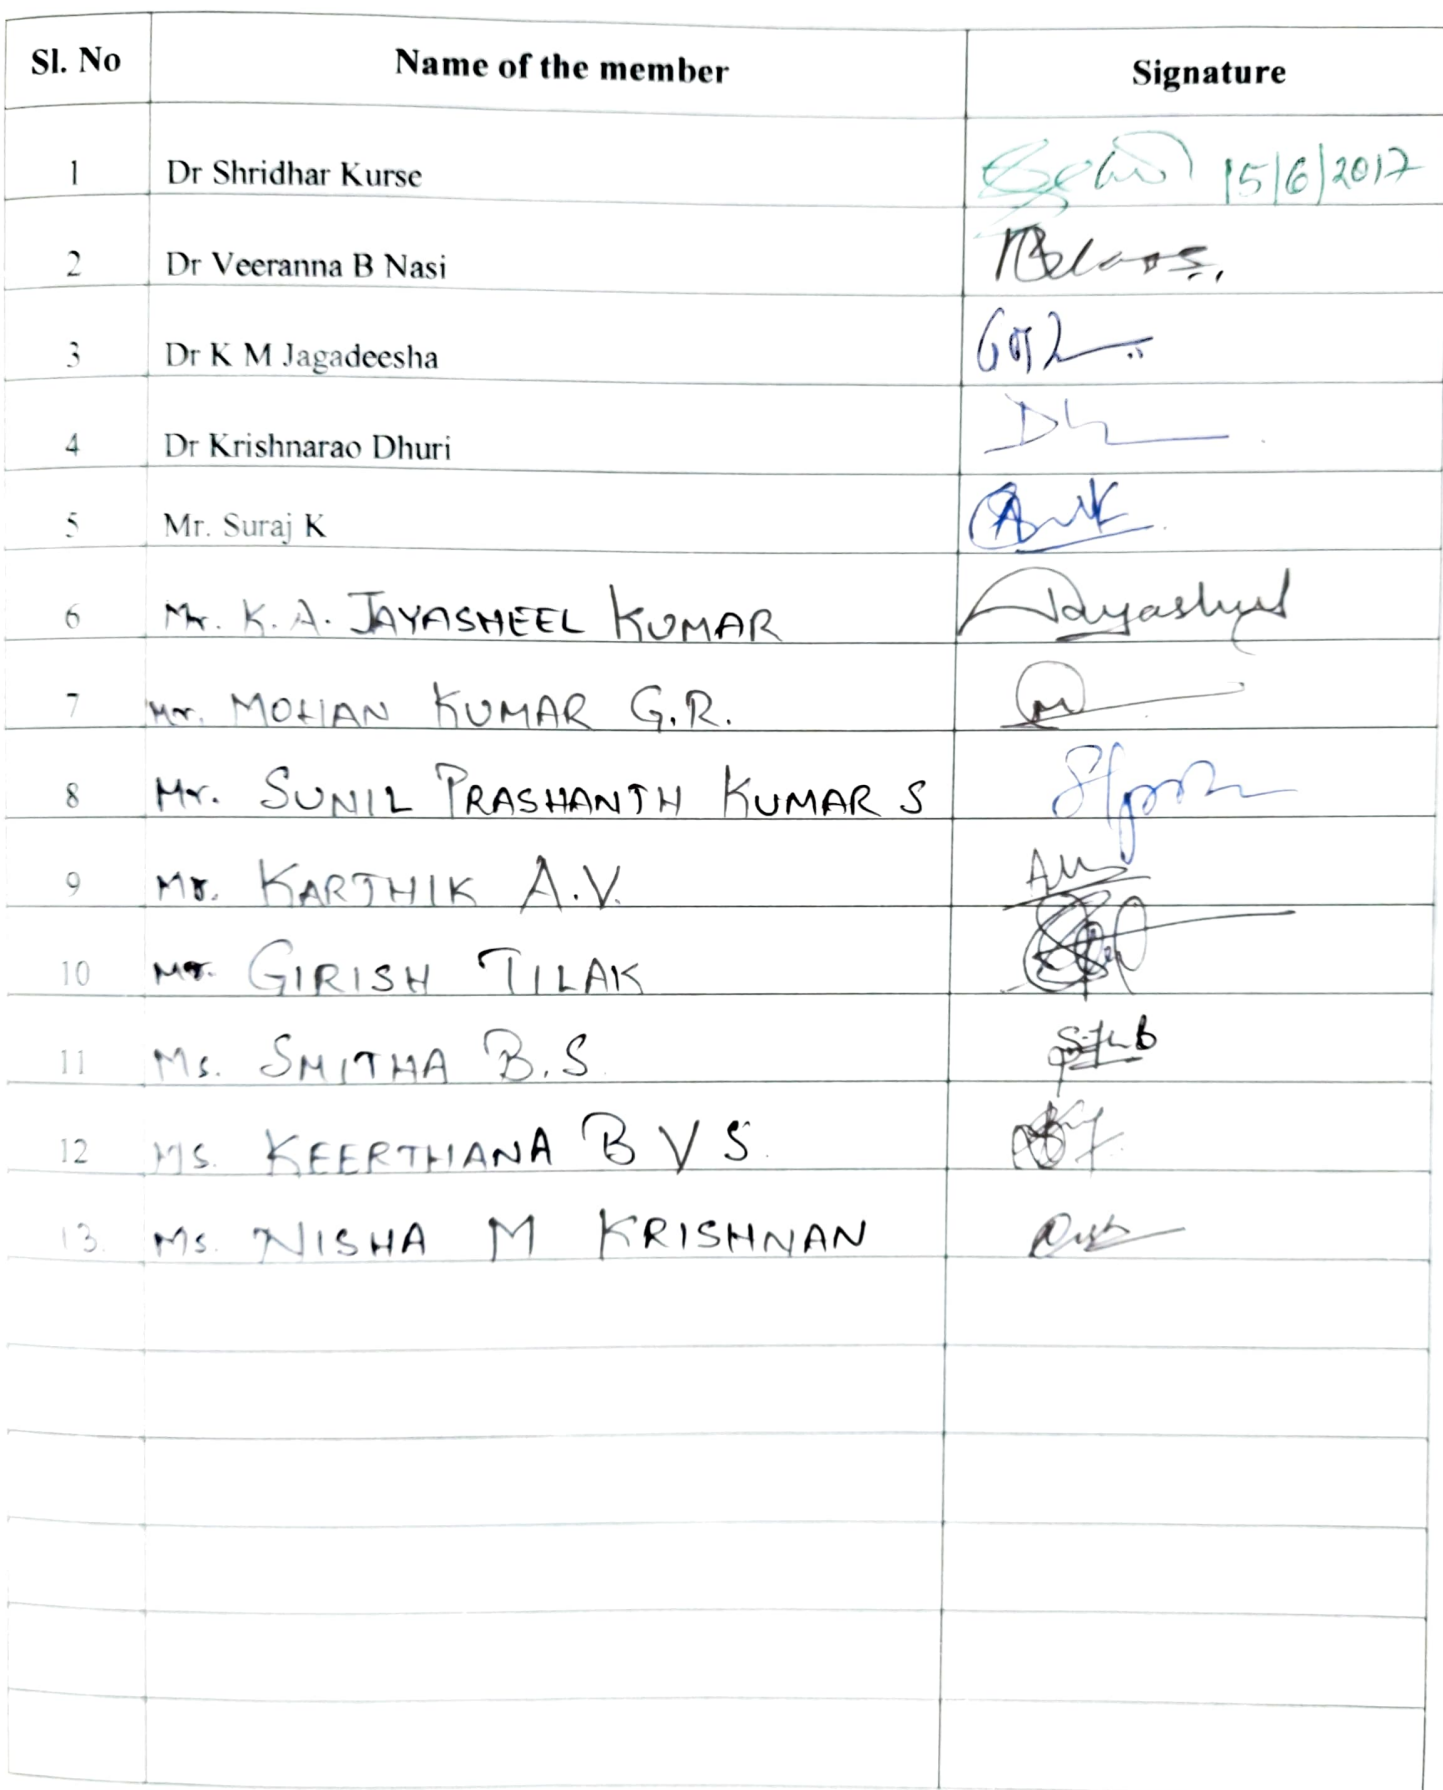 Sl. No Name of the member Signature
1 Dr Shridhar Kurse 15/6/2017
2 Dr Veeranna B Nasi
3 Dr K M Jagadeesha
4 Dr Krishnarao Dhuri
5 Mr. Suraj K
6 Mr. K. A. JAYASHEEL KUMAR
7 Mr. MOHAN KUMAR G.R.
8 Mr. SUNIL PRASHANTH KUMAR S
9 Mr. KARTHIK A.V.
10 Mr. GIRISH TILAK
11 Ms. SMITHA B.S
12 Ms. KEERTHANA B V S.
13. Ms. NISHA M KRISHNAN